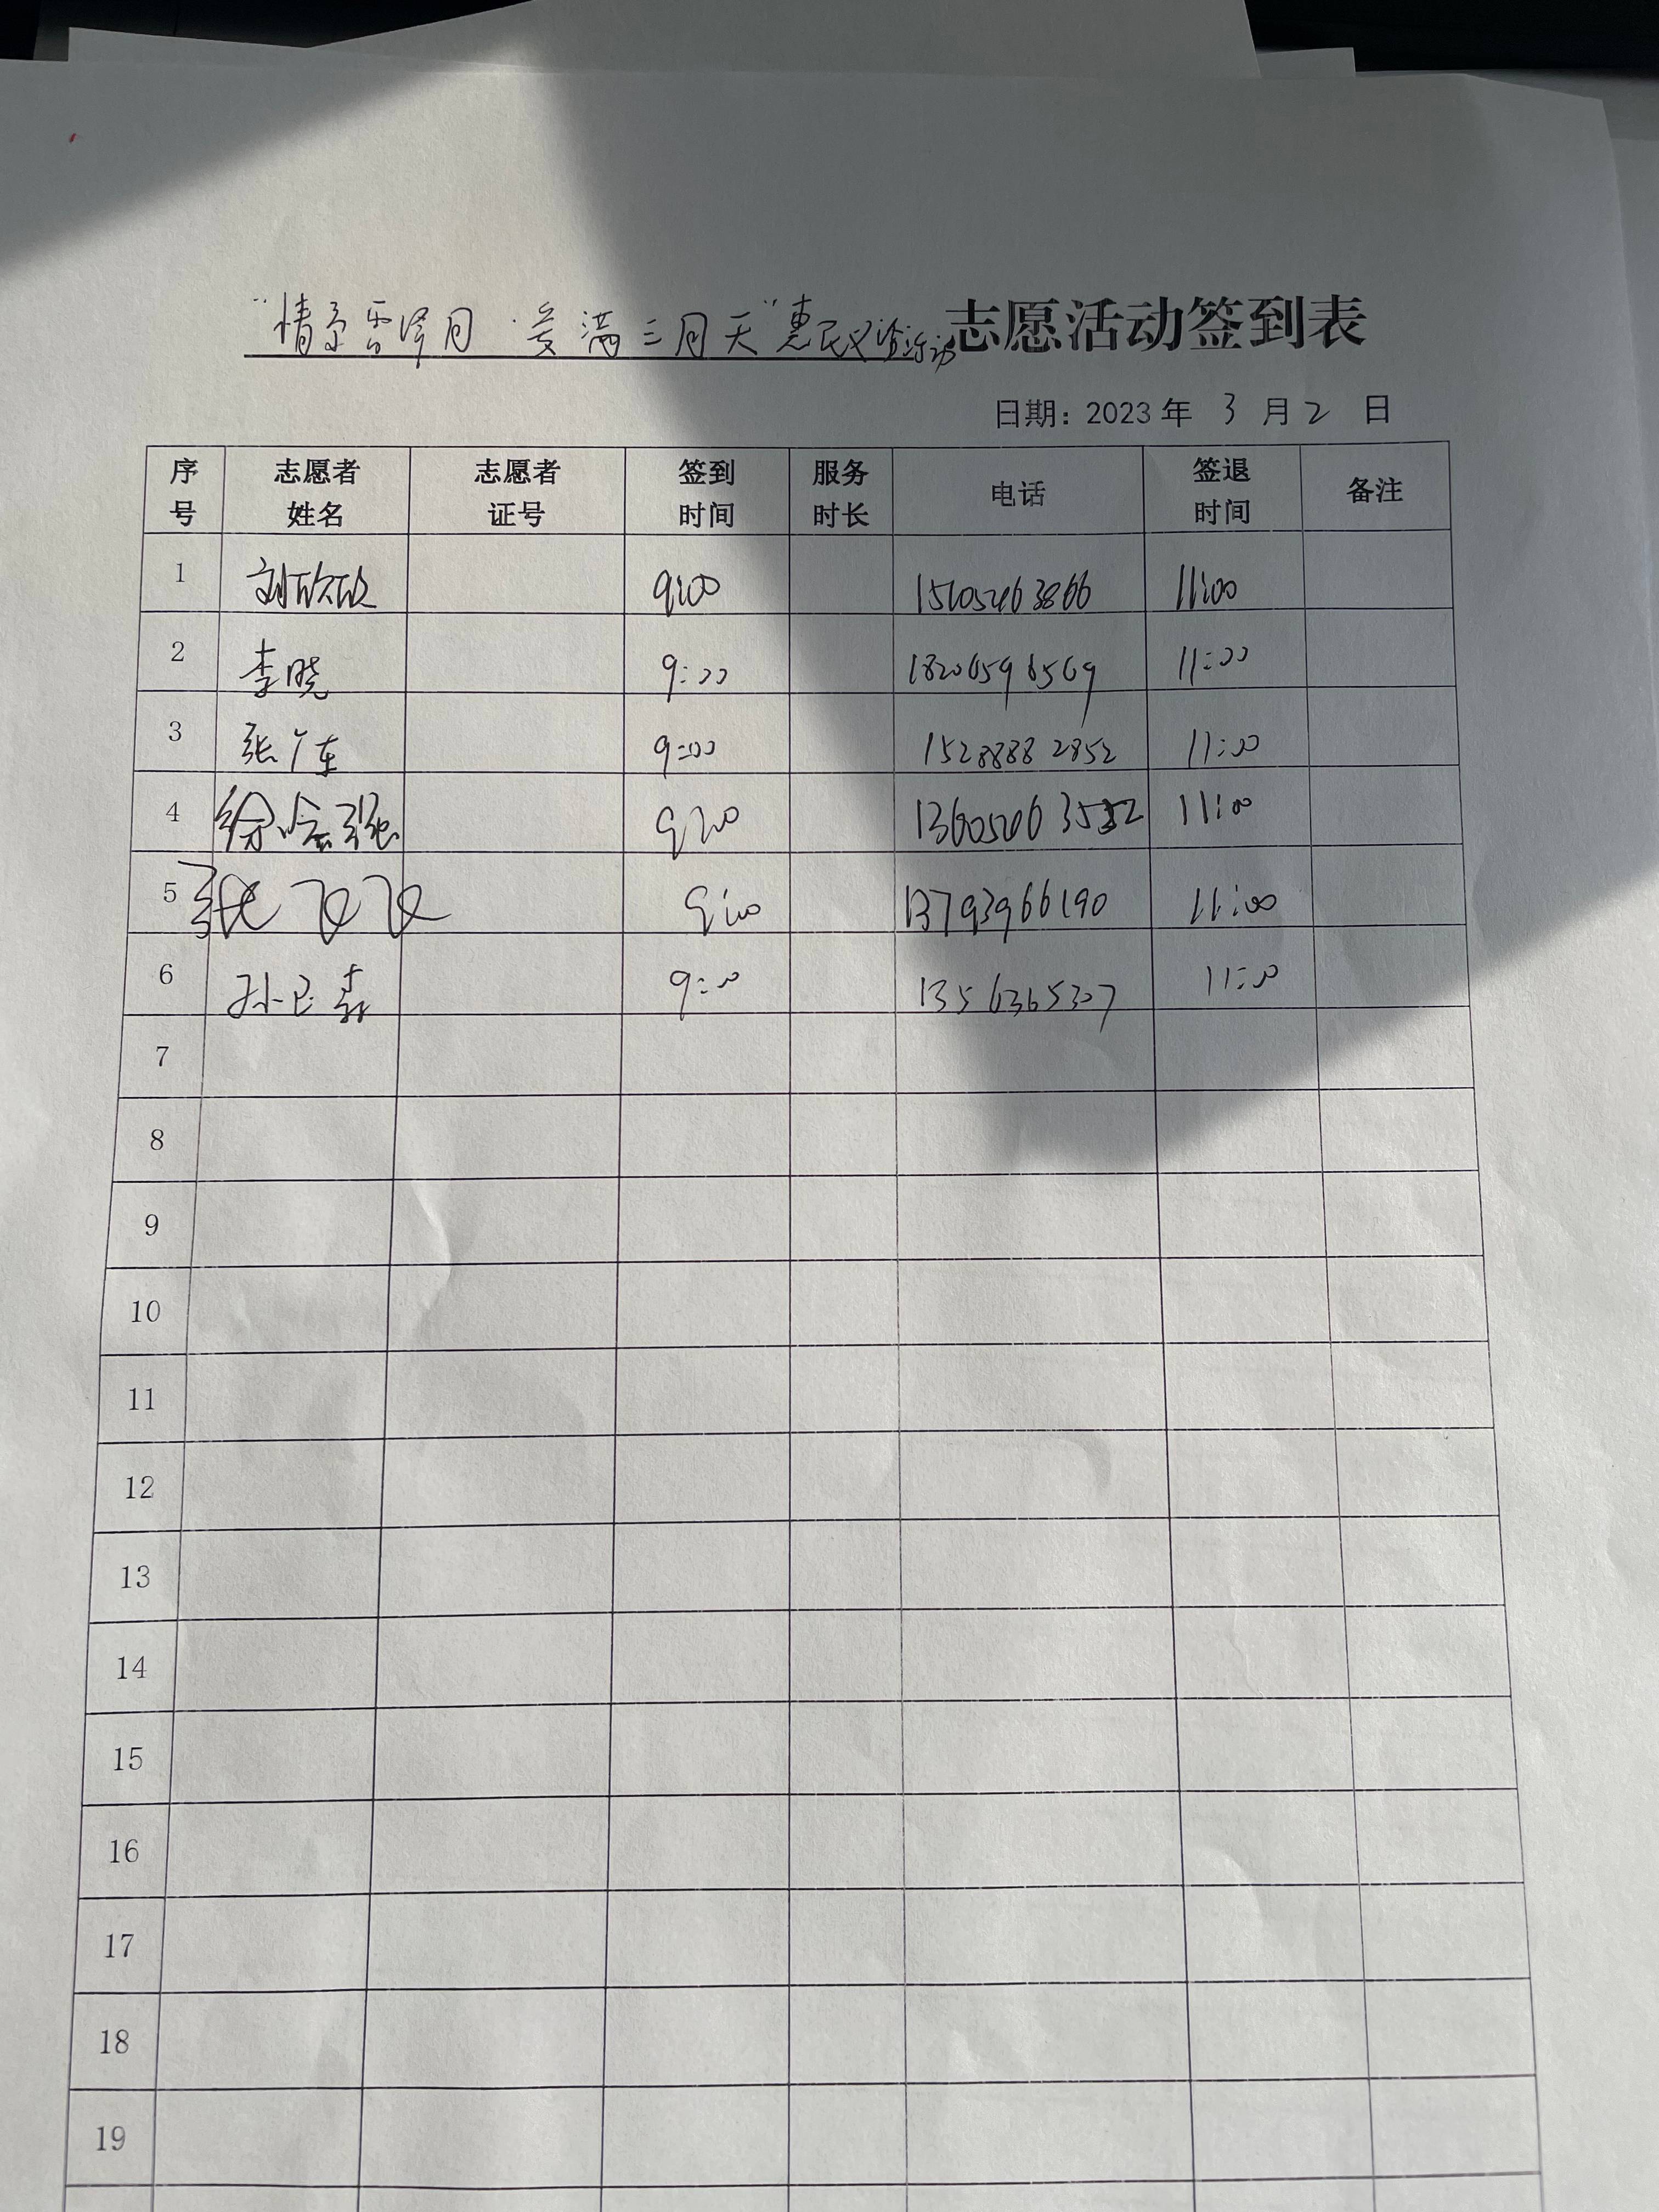 "情系雪泽月·爱满三月天"惠民义诊活动志愿活动签到表
日期：2023年 3 月 2 日
序号 志愿者姓名 志愿者证号 签到时间 服务时长 电话 签退时间 备注
1 刘欣欣 9:00 15105463866 11:00
2 李晓 9:00 18206596569 11:00
3 张广东 9:00 15288882852 11:00
4 9:00 11:00
5 张飞飞 9:00 13793966190 11:00
6 9:00 13561365307 11:00
7
8
9
10
11
12
13
14
15
16
17
18
19